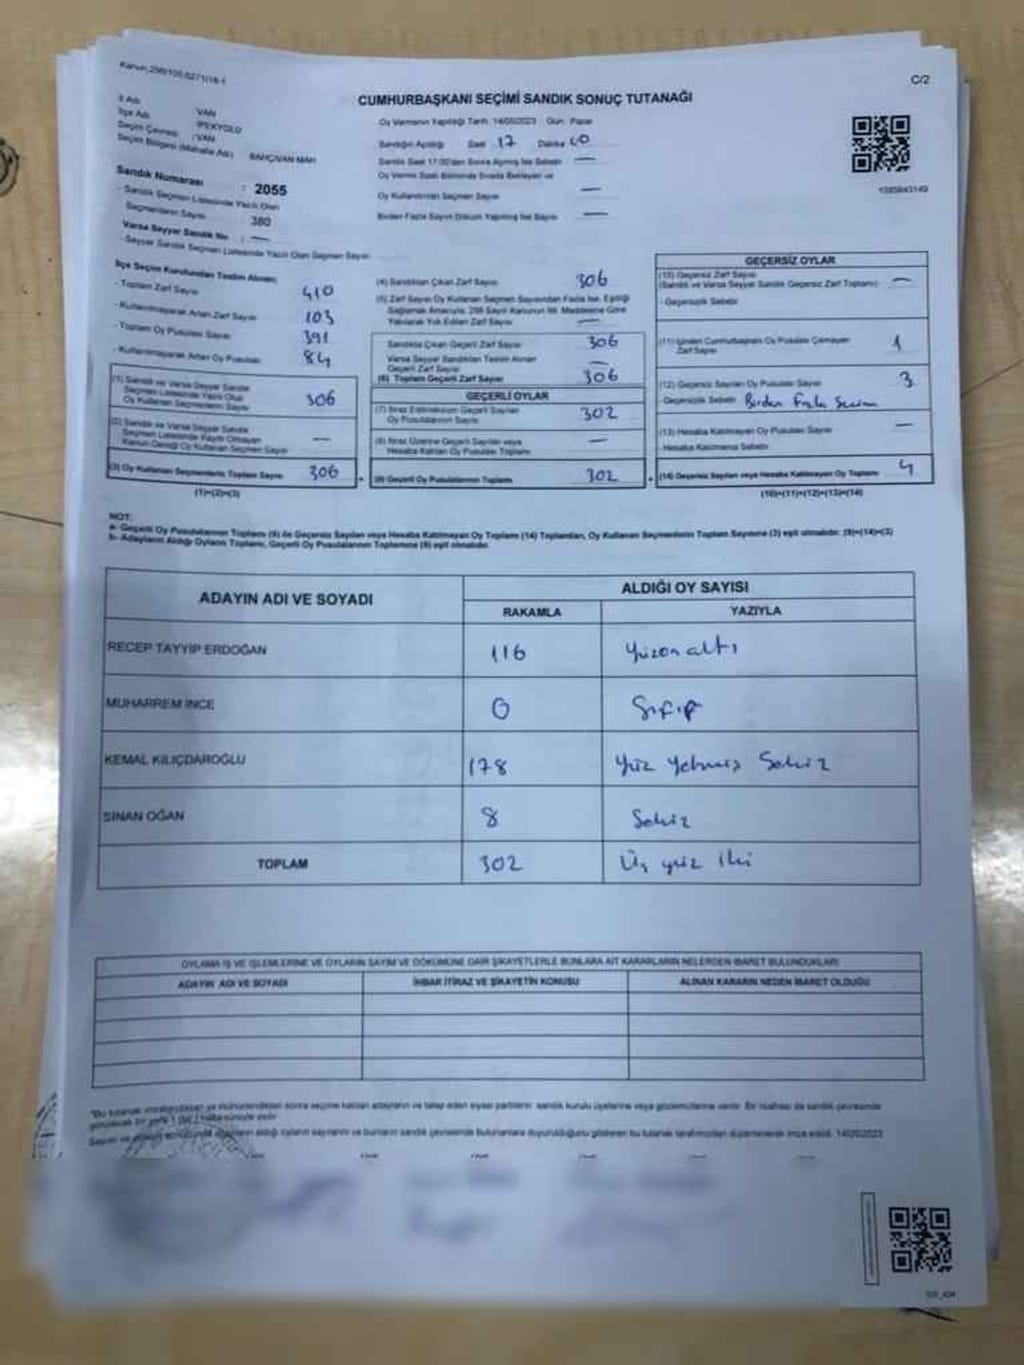 Kanun;298/105,6271/18-1
C/2
CUMHURBAŞKANI SEÇİMİ SANDIK SONUÇ TUTANAĞI
İl Adı : VAN
İlçe Adı : İPEKYOLU
Seçim Çevresi : VAN
Seçim Bölgesi (Mahalle Adı) : BAHÇIVAN MAH
Sandık Numarası : 2055
- Sandık Seçmen Listesinde Yazılı Olan
Seçmenlerin Sayısı 380
Varsa Seyyar Sandık No : —
- Seyyar Sandık Seçmen Listesinde Yazılı Olan Seçmen Sayısı
Oy Vermenin Yapıldığı Tarih: 14/05/2023 Gün: Pazar
Sandığın Açıldığı Saat 17 Dakika
Sandık Saat 17:00'den Sonra Açılmış İse Sebebi —
Oy Verme Saati Bitiminde Sırada Bekleyen ve
Oy Kullandırılan Seçmen Sayısı —
Birden Fazla Sayım Döküm Yapılmış İse Sayısı —
İlçe Seçim Kurulundan Teslim Alınan;
- Toplam Zarf Sayısı 410
- Kullanılmayarak Artan Zarf Sayısı 103
- Toplam Oy Pusulası Sayısı 391
- Kullanılmayarak Artan Oy Pusulası 84
(1) Sandık ve Varsa Seyyar Sandık
Seçmen Listesinde Yazılı Olup
Oy Kullanan Seçmenlerin Sayısı 306
(2) Sandık ve Varsa Seyyar Sandık
Seçmen Listesinde Kayıtlı Olmayan
Kanun Gereği Oy Kullanan Seçmen Sayısı —
(3) Oy Kullanan Seçmenlerin Toplam Sayısı 306
(1)+(2)=(3)
(4) Sandıktan Çıkan Zarf Sayısı 306
(5) Zarf Sayısı Oy Kullanan Seçmen Sayısından Fazla İse, Eşitliği
Sağlamak Amacıyla, 298 Sayılı Kanunun 98. Maddesine Göre
Yakılarak Yok Edilen Zarf Sayısı —
Sandıkta Çıkan Geçerli Zarf Sayısı 306
Varsa Seyyar Sandıktan Teslim Alınan
Geçerli Zarf Sayısı —
(6) Toplam Geçerli Zarf Sayısı 306
GEÇERLİ OYLAR
(7) İtiraz Edilmeksizin Geçerli Sayılan
Oy Pusulalarının Sayısı 302
(8) İtiraz Üzerine Geçerli Sayılan veya
Hesaba Katılan Oy Pusulası Toplamı —
(9) Geçerli Oy Pusulalarının Toplamı 302
GEÇERSİZ OYLAR
(10) Geçersiz Zarf Sayısı
(Sandık ve Varsa Seyyar Sandık Geçersiz Zarf Toplamı) —
- Geçersizlik Sebebi
(11) İçinden Cumhurbaşkanı Oy Pusulası Çıkmayan
Zarf Sayısı 1
(12) Geçersiz Sayılan Oy Pusulası Sayısı 3
Geçersizlik Sebebi Birden Fazla Secim
(13) Hesaba Katılmayan Oy Pusulası Sayısı —
Hesaba Katılmama Sebebi
(14) Geçersiz Sayılan veya Hesaba Katılmayan Oy Toplamı 4
(10)+(11)+(12)+(13)=(14)
NOT:
a- Geçerli Oy Pusulalarının Toplamı (9) ile Geçersiz Sayılan veya Hesaba Katılmayan Oy Toplamı (14) Toplamları, Oy Kullanan Seçmenlerin Toplam Sayısına (3) eşit olmalıdır. (9)+(14)=(3)
b- Adayların Aldığı Oyların Toplamı, Geçerli Oy Pusulalarının Toplamına (9) eşit olmalıdır.
ADAYIN ADI VE SOYADI
ALDIĞI OY SAYISI
RAKAMLA YAZIYLA
RECEP TAYYİP ERDOĞAN 116 Yüzon altı
MUHARREM İNCE 0 Sıfır
KEMAL KILIÇDAROĞLU 178 Yüz Yetmiş Sekiz
SİNAN OĞAN 8 Sekiz
TOPLAM 302 Üç yüz iki
OYLAMA İŞ VE İŞLEMLERİNE VE OYLARIN SAYIM VE DÖKÜMÜNE DAİR ŞİKAYETLERLE BUNLARA AİT KARARLARIN NELERDEN İBARET BULUNDUKLARI
ADAYIN ADI VE SOYADI İHBAR İTİRAZ VE ŞİKAYETİN KONUSU ALINAN KARARIN NEDEN İBARET OLDUĞU